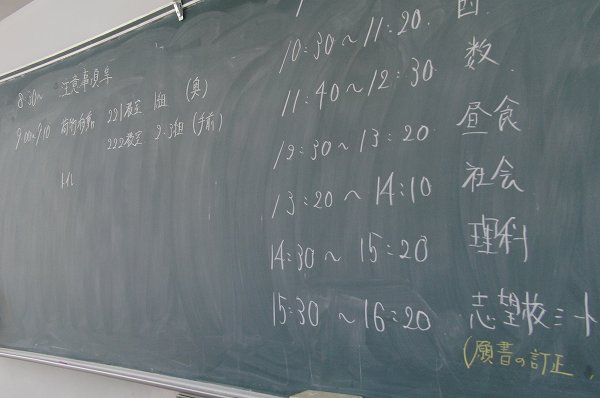 8:30〜 注意事項等
9:00〜9:10 荷物移動 221教室 1組 (奥)
222教室 2・3組 (手前)
トイレ
10:30〜11:20
11:40〜12:30 数
12:30〜13:20 昼食
13:20〜14:10 社会
14:30〜15:20 理科
15:30〜16:20 志望校ミート
(願書の訂正